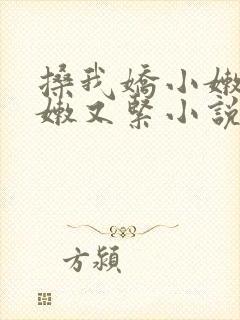 搡我嬌小嫩
嫩又緊小說
方潁